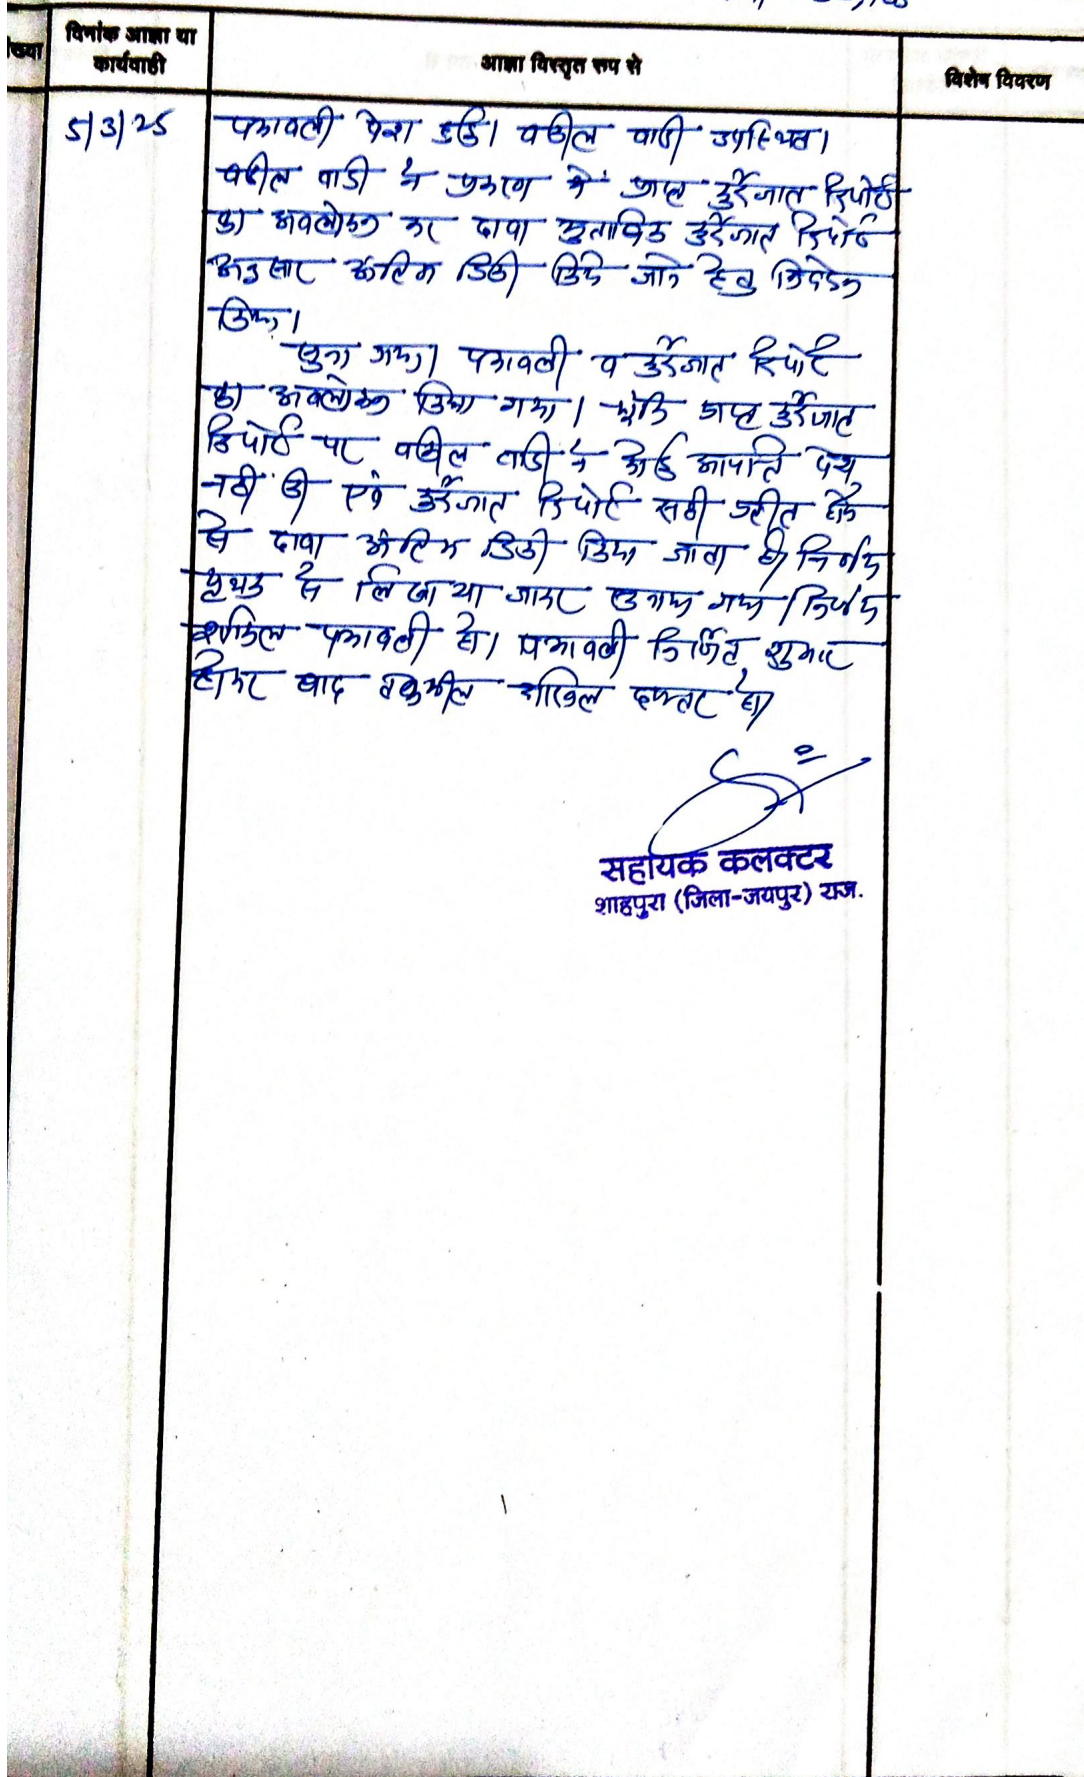 ख्या
दिनांक आज्ञा या
कार्यवाही
आज्ञा विस्तृत रूप से
विशेष विवरण
5/3/25
पत्रावली पेश हुई। वकील वादी उपस्थित।
वकील वादी ने प्रकरण में प्राप्त कुर्रेजात रिपोर्ट
का अवलोकन कर दावा मुताबिक कुर्रेजात रिपोर्ट
अनुसार अंतिम डिक्री किये जाने हेतु निवेदन
किया।
सुना गया। पत्रावली व कुर्रेजात रिपोर्ट
का अवलोकन किया गया। चूंकि प्राप्त कुर्रेजात
रिपोर्ट पर वकील वादी ने कोई आपत्ति पेश
नहीं की एवं कुर्रेजात रिपोर्ट सही प्रतीत होने
से दावा अंतिम डिक्री किया जाता है। निर्णय
पृथक से लिखाया जाकर सुनाया गया। निर्णय
शामिल पत्रावली हो। पत्रावली निर्णित शुमार
होकर बाद तकमील दाखिल दफ्तर हो।
सहायक कलक्टर
शाहपुरा (जिला-जयपुर) राज.